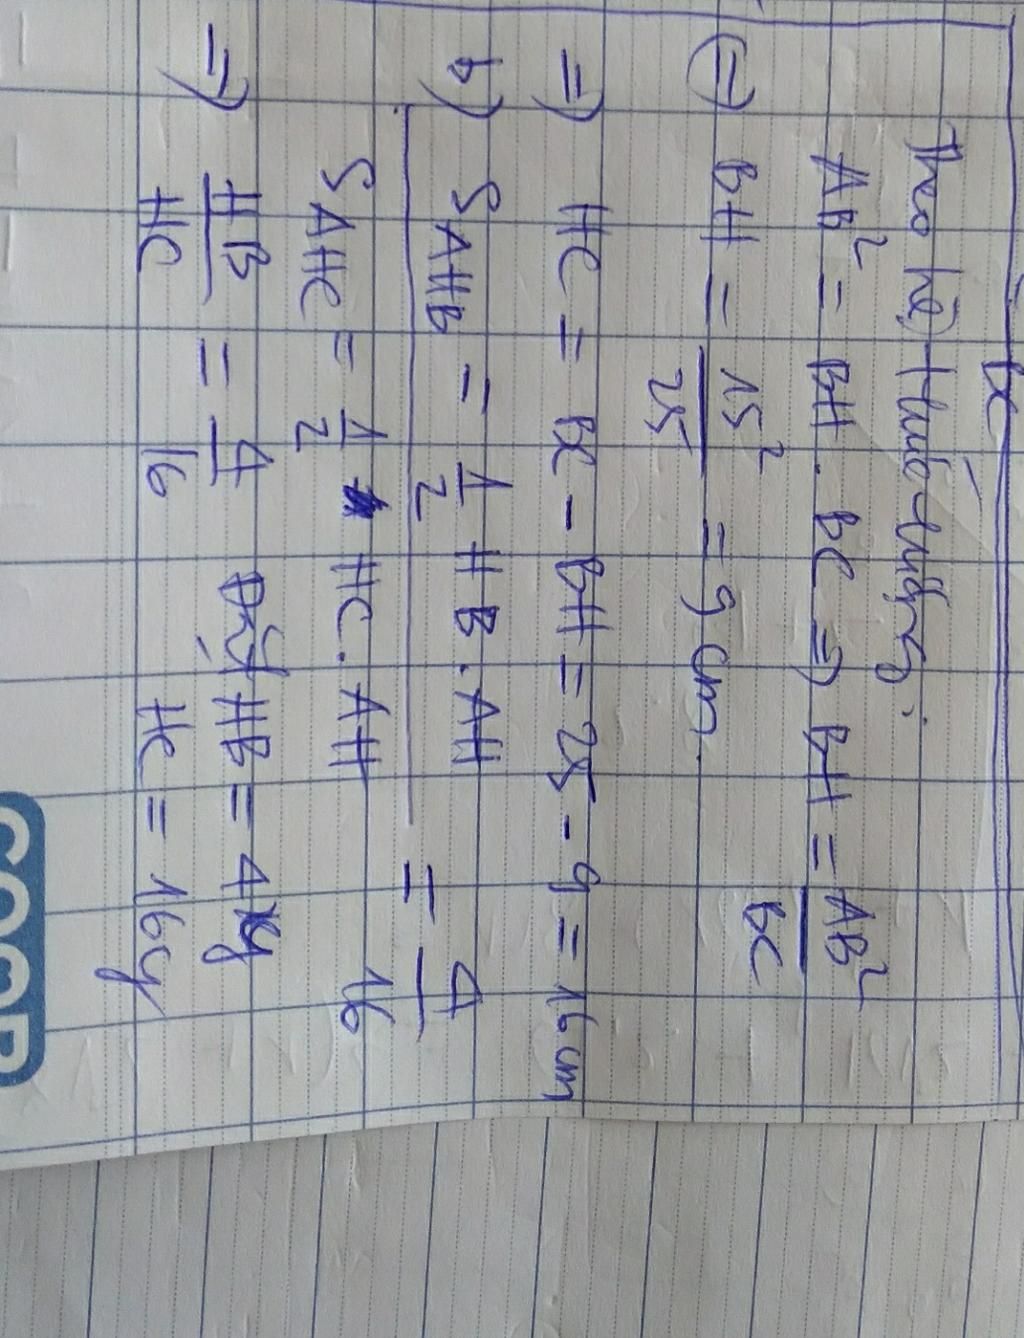 BC
Theo hệ thức lượng:
AB² = BH . BC => BH = AB²/BC
(=) BH = 15²/25 = 9 cm.
=> HC = BC - BH = 25 - 9 = 16 cm
b) S AHB = 1/2 HB . AH
S AHC = 1/2 HC . AH
= 4/16
=> HB/HC = 4/16 Đặt HB = 4y
HC = 16y